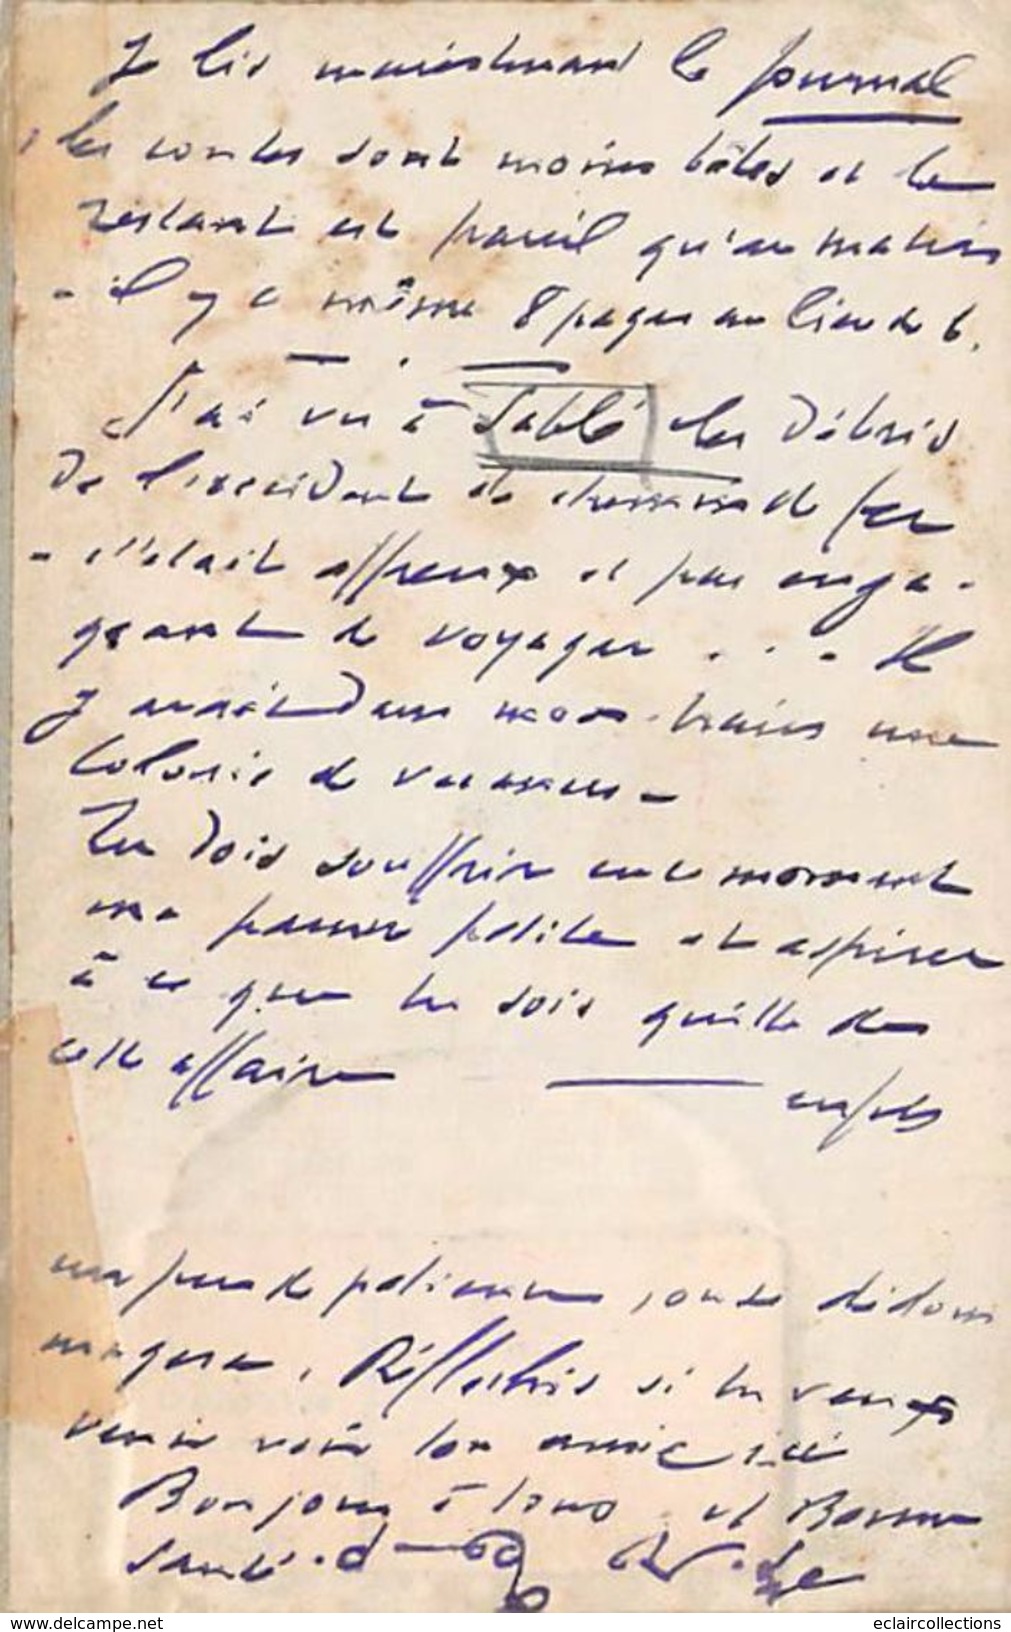 Je lis maintenant le Journal
, les contes sont moins bêtes et le
restant est pareil qu'au matin
- il y a même 8 pages au lieu de 6.
J'ai vu à Sablé les débris
de l'accident de chemin de fer
- c'était affreux et pas enga-
geant de voyager . . . Il
y avait dans mon train une
Colonie de vacances -
Tu dois souffrir en ce moment
ma pauvre petite et aspirer
à ce que tu sois quitte de
cette affaire
un peu de patience, on se dédom
magera. Réfléchis si tu veux
venir voir ton amie ici
Bonjour à tous et Bonne
santé.
www.delcampe.net
eclaircollections